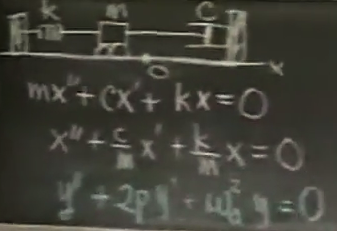 k m c
0 x
mx" + cx' + kx = 0
x" + c/m x' + k/m x = 0
y" + 2py' + ω₀² y = 0